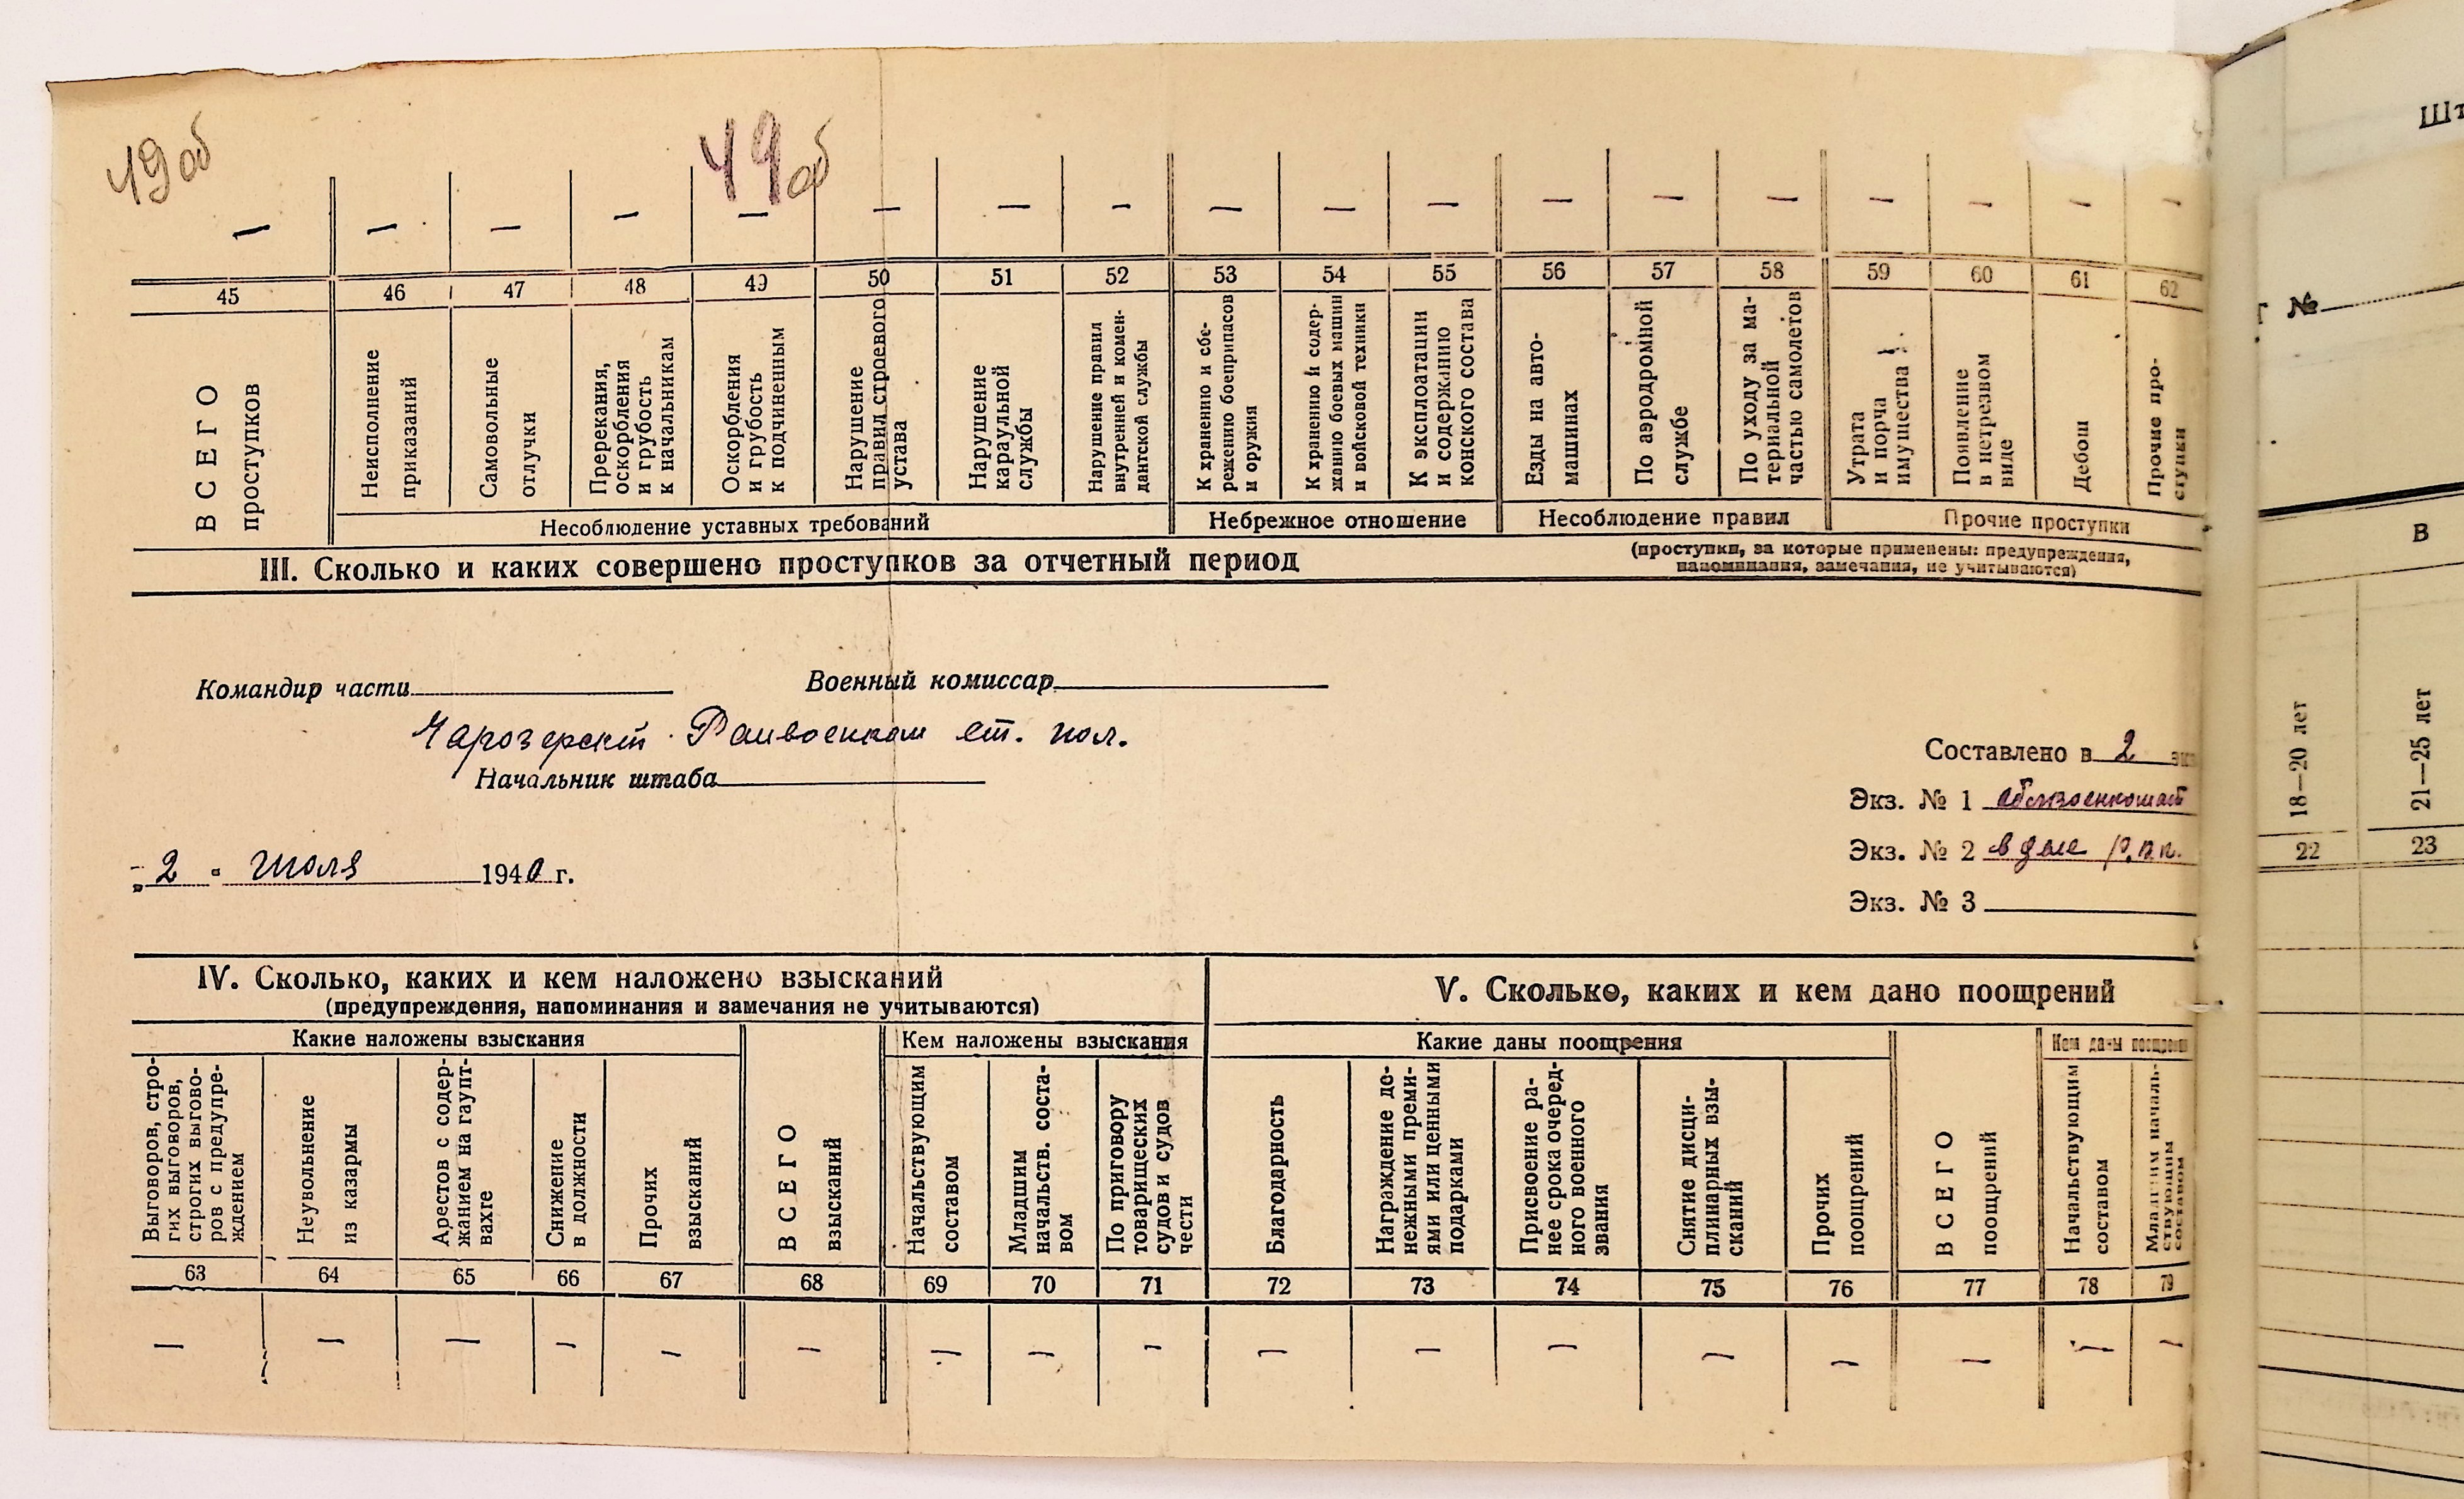 49 об 49 об
— — — — — — — — — — — — — — — — — —
45 46 47 48 49 50 51 52 53 54 55 56 57 58 59 60 61 62
ВСЕГО проступков
Неисполнение приказаний
Самовольные отлучки
Пререкания, оскорбления и грубость к начальникам
Оскорбления и грубость к подчиненным
Нарушение правил строевого устава
Нарушение караульной службы
Нарушение правил внутренней и комендантской службы
К хранению и сбережению боеприпасов и оружия
К хранению и содержанию боевых машин и войсковой техники
К эксплоатации и содержанию конского состава
Езды на автомашинах
По аэродромной службе
По уходу за материальной частью самолетов
Утрата и порча имущества
Появление в нетрезвом виде
Дебош
Прочие проступки
Несоблюдение уставных требований
Небрежное отношение
Несоблюдение правил
Прочие проступки
III. Сколько и каких совершено проступков за отчетный период
(проступки, за которые применены: предупреждения,
напоминания, замечания, не учитываются)
Командир части Военный комиссар
Чарозерский Райвоенком ст. пол.
Начальник штаба
Составлено в 2 экз
Экз. № 1 облвоенкомат
Экз. № 2 в деле
Экз. № 3
„2" Июля 1940 г.
IV. Сколько, каких и кем наложено взысканий
(предупреждения, напоминания и замечания не учитываются)
V. Сколько, каких и кем дано поощрений
Какие наложены взыскания
Кем наложены взыскания
Какие даны поощрения
Кем даны поощрения
Выговоров, строгих выговоров, строгих выговоров с предупреждением
Неувольнение из казармы
Арестов с содержанием на гауптвахте
Снижение в должности
Прочих взысканий
ВСЕГО взысканий
Начальствующим составом
Младшим начальств. составом
По приговору товарищеских судов и судов чести
Благодарность
Награждение денежными премиями или ценными подарками
Присвоение ранее срока очередного военного звания
Снятие дисциплинарных взысканий
Прочих поощрений
ВСЕГО поощрений
Начальствующим составом
Младшим начальствующим составом
63 64 65 66 67 68 69 70 71 72 73 74 75 76 77 78 79
— — — — — — — — — — — — — — — — —
Шт
№
В
18—20 лет
21—25 лет
22 23